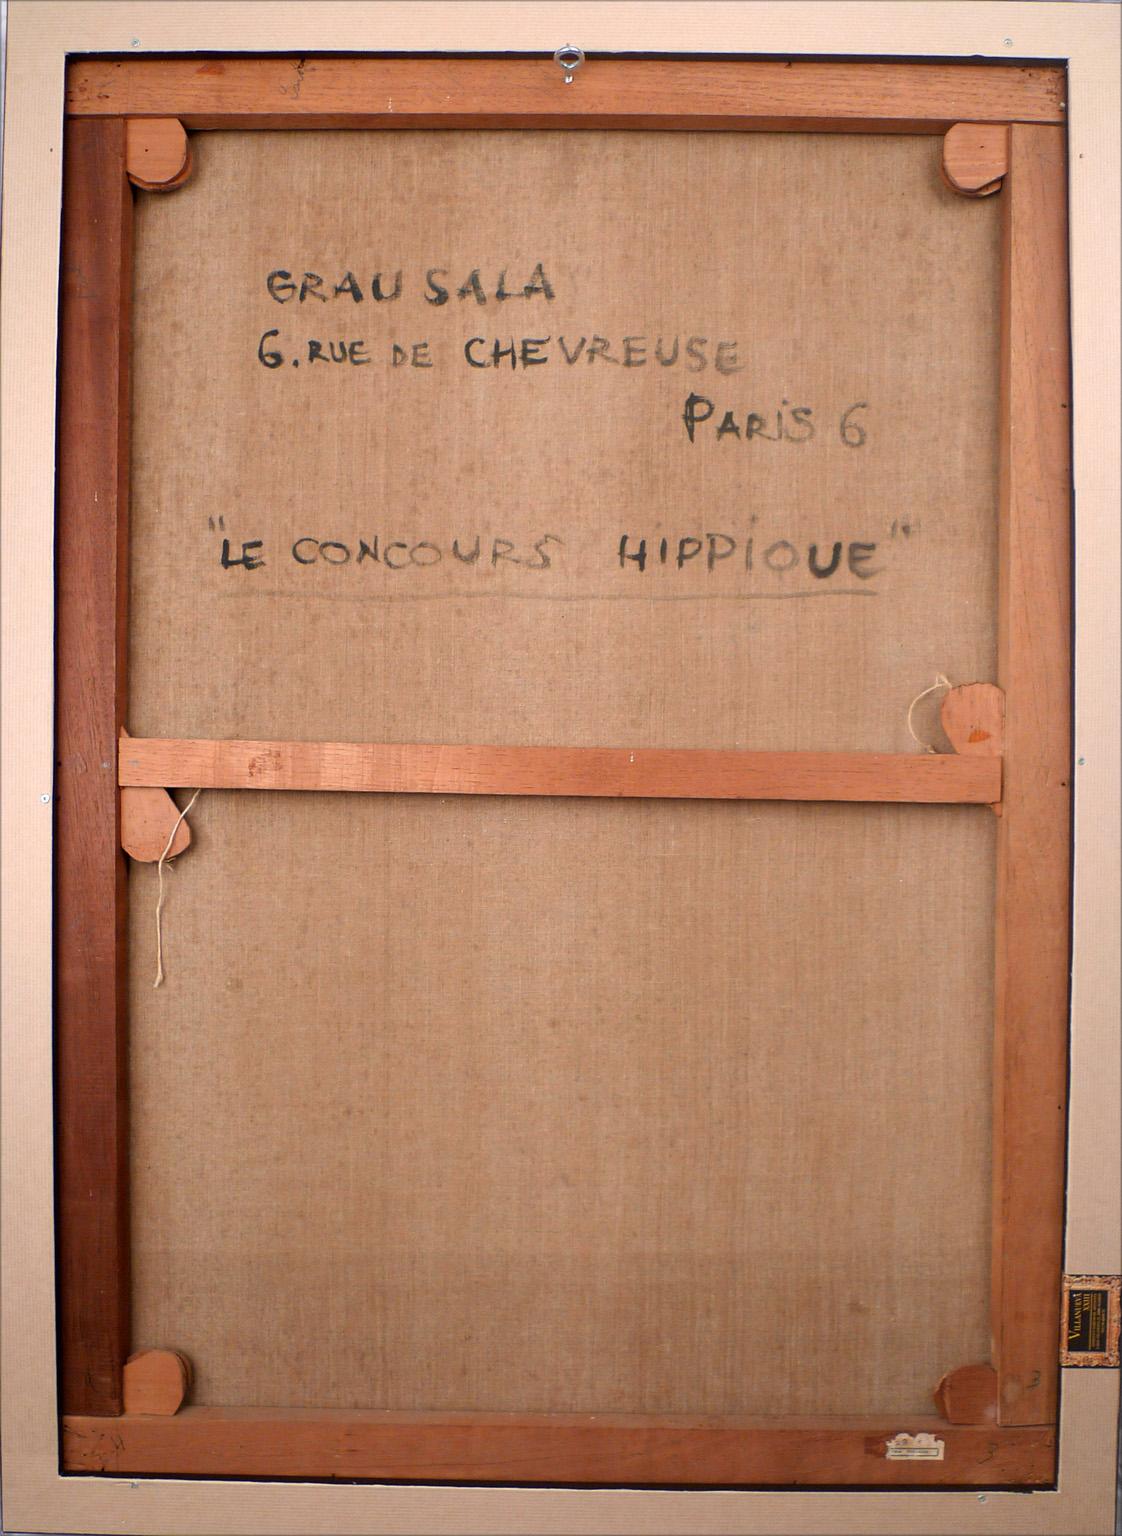 GRAU SALA
6. RUE DE CHEVREUSE
PARIS 6
"LE CONCOURS HIPPIQUE"
VILLANUEVA
XXIII
3